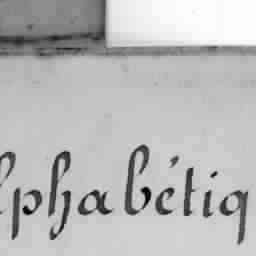 lphabétiq